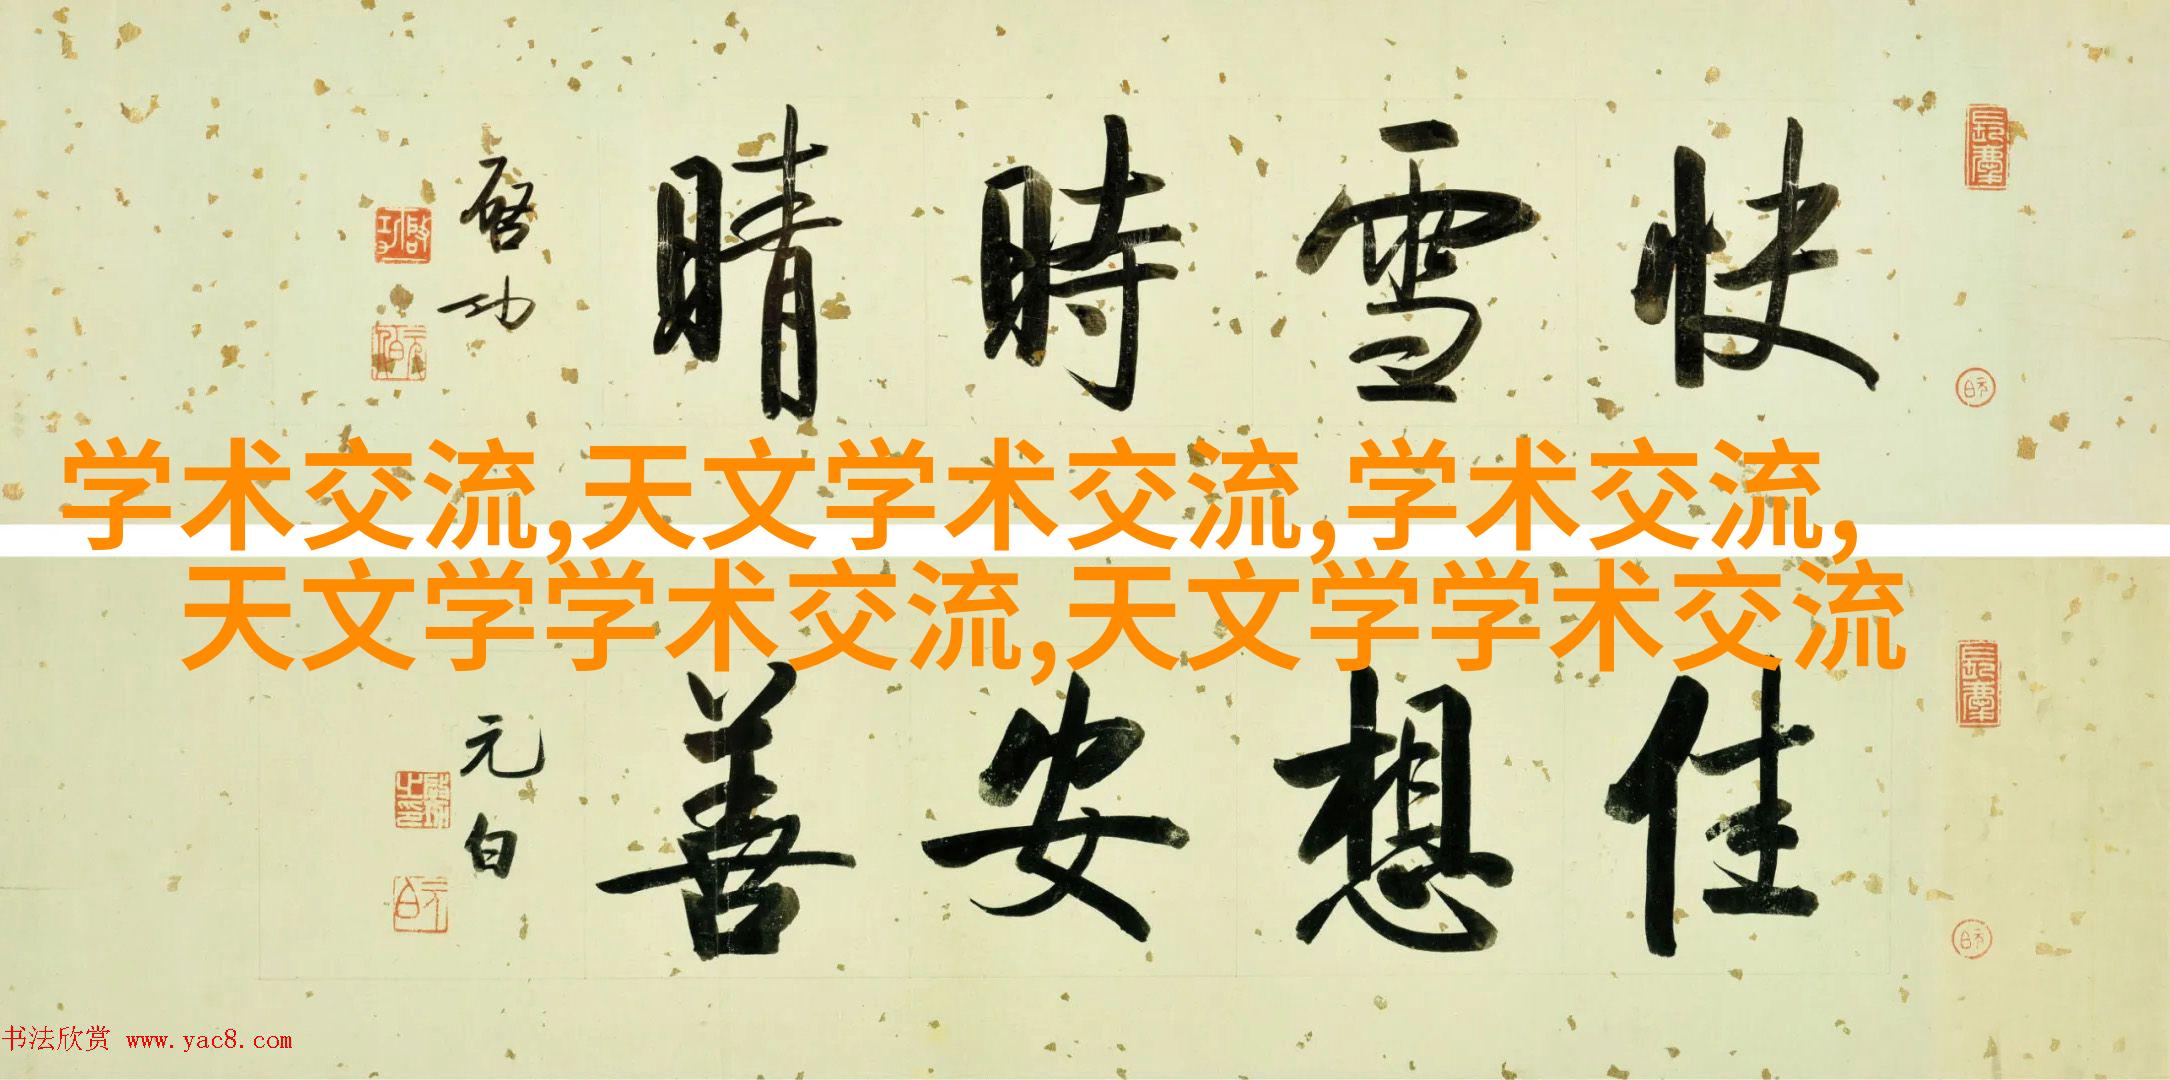 快雪時晴
啓功
学术交流,天文学术交流,学术交流,
天文学学术交流,天文学学术交流
佳想安善
元白
书法欣赏 www.yac8.com